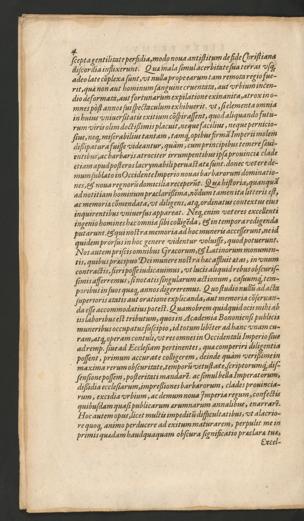 4
scepta gentilitate perfidia, modo noua antistitum de fide Christiana
discordia inflixerunt. Qua mala simul acerbitate sua terras vsq́;
adeo late cõplexa sunt, vt nulla prope earum tam remota regio fue-
rit, quã non aut hominum sanguine cruentata, aut vrbium incen-
dio deformata, aut fortunarum expilatione exinanita, atrox in o-
mnes põst annos suos spectaculum exhibuerit. vt, si elementa omnia
in huius vniuersitatis exitium cõspirassent, quod aliquando futu-
rum viris olim doctissimis placuit, neque facilius, neque pernicio-
sius, neq; miserabilius tantam, tamq́; opibus firmã Imperij molem
dissipatura fuisse videantur, quàm, cum principibus temere saui-
entibus, ac barbaris atrociter irrumpentibus ipsa prouincia clade
etiam apud posteros lacrymabili peruastata sunt. donec vetere de-
mum sublato in Occidente Imperio nouas barbarorum dominatio-
nes, & noua regnorũ domicilia receperũt. Qua historia, quanquã
ad notitiam hominum praclarissima, nõdum tamen ita litteris est,
ac memoria cõmendata, vt diligens, atq́; ordinatus contextus eius
inquirentibus vniuersus appareat. Neq; enim veteres excellenti
ingenio homines hac omnia sibi colligẽda, & in tempora digerenda
putarunt. & qui nostra memoria ad hoc munus accesserunt, ne id
quidem prorsus in hoc genere videntur voluisse, quod potuerunt.
Nos autem priscis omnibus Gracorum, & Latinorum monumen-
tis, quibus pracipuo Dei munere nostra hac affluit atas, in vnum
contractis, fieri posse iudicauimus, vt lucis aliquid rebus obscuris-
simis afferremus, si notatis singularum actionum, casuumq́; tem-
poribus in suos quaq; annos digereremus. Quo studio nullũ ad acta
superioris atatis aut oratione explicanda, aut memoria cõseruan-
da esse accommodatius potest. Quamobrem quidquid ocij mihi à de-
bitis laboribus est tributum, quos in Academia Bononiensi publicis
muneribus occupatus suscipio, id totum libẽter ad hanc vnam cu-
ram, atq́; operam contuli, vt res omnes in Occidentis Imperio siue
ad remp. siue ad Ecclesiam pertinentes, qua comperiri diligentia
possent, primum accurate colligerem, deinde quàm verissime in
maxima rerum obscuritate, temporũ vetustate, scriptorumq́; dis-
sensione possem, posteritati mandarẽ. ac simul bella Imperatorum,
dissidia ecclesiarum, impressiones barbarorum, clades prouincia-
rum, excidia vrbium, ac demum noua Imperia regum, confectis
quibusdam quasi publicarum arumnarum annalibus, enarrarẽ.
Hoc autem opus, licet multis impeditũ difficultatibus, vt alacrio-
re quoq́; animo perducere ad exitum maturarem, perpulit me in
primis quadam haud quaquam obscura significatio praclara tua,
Excel-